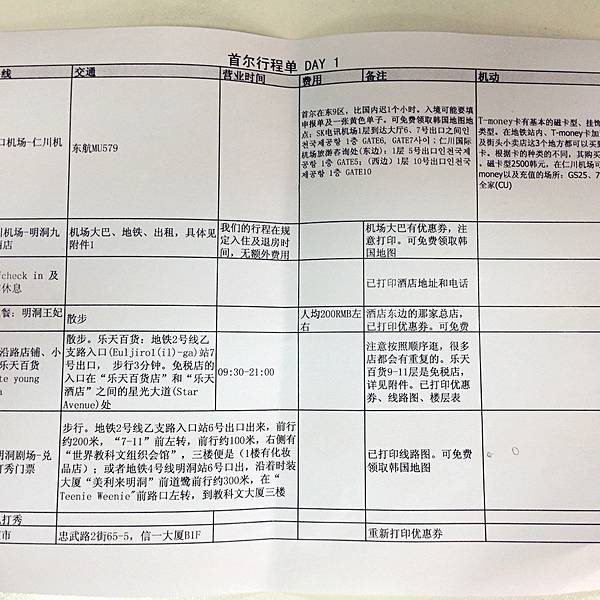 首尔行程单 DAY 1
线
交通
营业时间
费用
备注
机动
口机场-仁川机
东航MU579
首尔在东9区，比国内迟1个小时。入境可能要填
申报单及一张黄色单子。可免费领取韩国地图地
点：SK电讯机场1层到达大厅6、7号出口之间인
천국제공항 1층 GATE6, GATE7사이；仁川国际
机场旅游咨询处(东边)：1层 5号出口인천국제
공항 1층 GATE5；（西边）1层 10号出口인천국
제공항 1층 GATE10
T-money卡有基本的磁卡型、挂饰
类型。在地铁站内、T-money卡加
及街头小卖店这3个地方都可以买到
卡。根据卡的种类的不同，其购买
。磁卡型2500韩元，在仁川机场可
money以及充值的场所：GS25、7
全家(CU)
川机场-明洞九
酒店
机场大巴、地铁、出租，具体见
附件1
我们的行程在规
定入住及退房时
间，无额外费用
机场大巴有优惠券，注
意打印。可免费领取韩
国地图
check in 及
休息
已打印酒店地址和电话
餐：明洞王妃
散步
人均200RMB左
右
酒店东边的那家总店，
已打印优惠券。可免费
沿路店铺、小
乐天百货
te young
a
散步。乐天百货：地铁2号线乙
支路入口(Euljiro1(il)-ga)站7
号出口， 步行3分钟。免税店的
入口在“乐天百货店”和“乐天
酒店”之间的星光大道(Star
Avenue)处
09:30-21:00
注意按照顺序逛，很多
店都会有重复的。乐天
百货9-11层是免税店，
详见附件。已打印优惠
券、线路图、楼层表
明洞剧场-兑
打秀门票
步行。地铁2号线乙支路入口站6号出口出来，前行
约200米，“7-11”前左转，前行约100米，右侧有
“世界教科文组织会馆”，三楼便是（1楼有化妆
品店）；或者地铁4号线明洞站6号口出，沿着时装
大厦“美利来明洞”前道鹭前行约300米，在“
Teenie Weenie"前路口左转，到教科文大厦三楼
已打印线路图。可免费
领取韩国地图
打秀
市
忠武路2街65-5，信一大厦B1F
重新打印优惠券